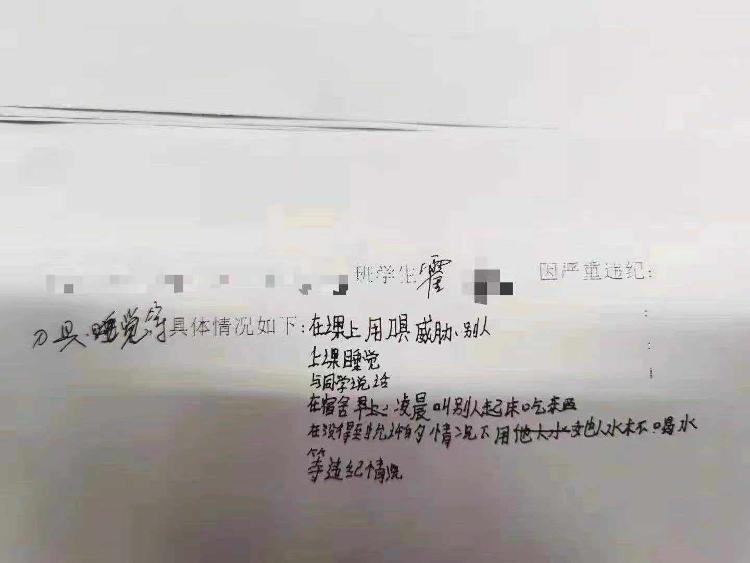 班学生霍 因严重违纪:
刀具、睡觉等具体情况如下:在课上用刀具威胁别人
上课睡觉
与同学说话
在宿舍早上凌晨叫别人起床吃东西
在没得到允许的情况下用他人水 他人水杯喝水
等
等违纪情况